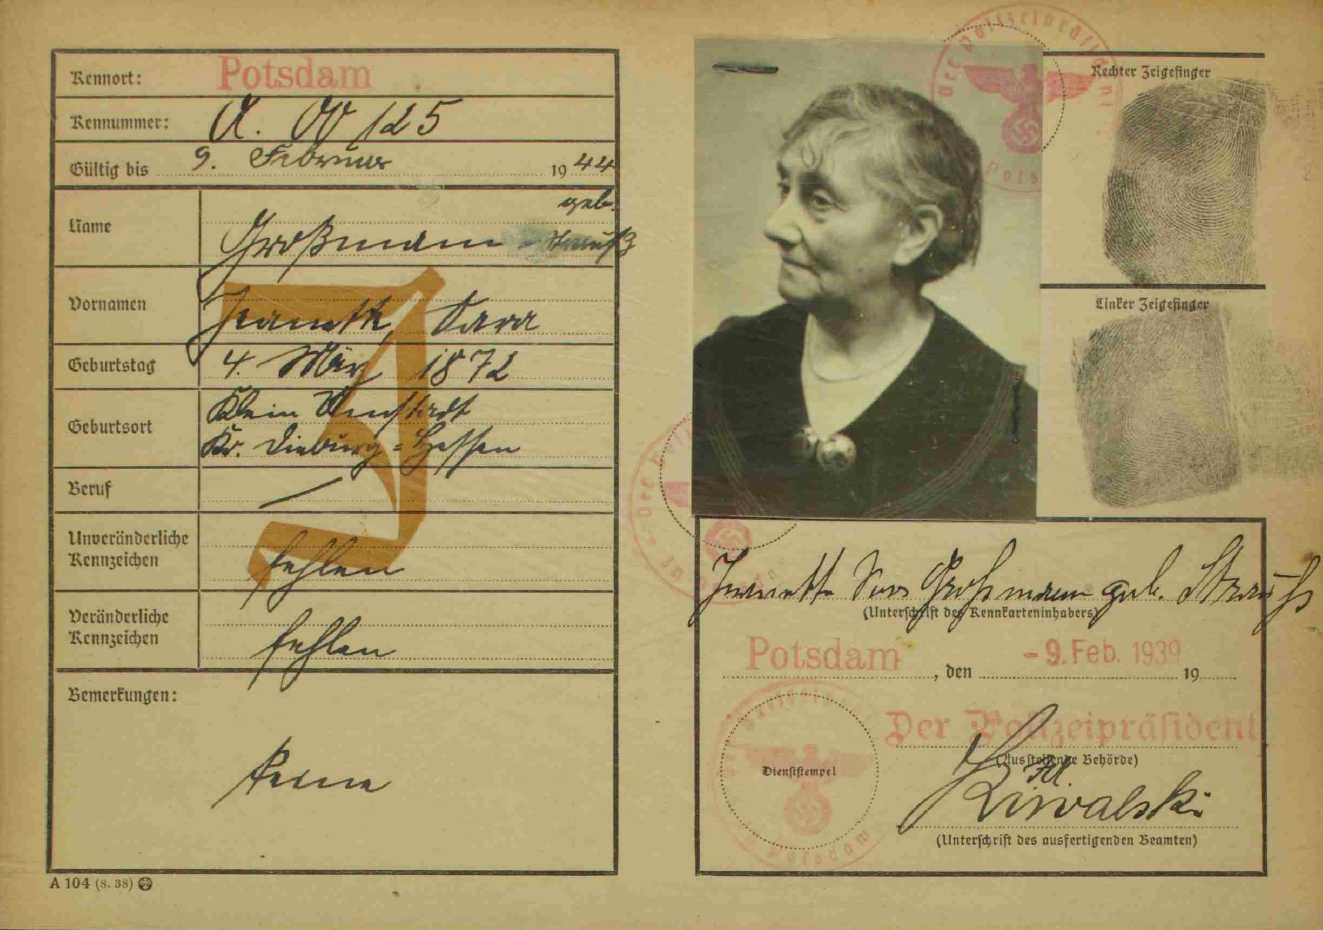 Kennort: Potsdam
Kennummer: A. 00125
Gültig bis 9. Februar 1944
geb.
Name Großmann - Strauß
Vornamen Jeanette, Sara
Geburtstag 4. März 1872
Geburtsort Klein Umstadt
Kr. Dieburg = Hessen
Beruf —
Unveränderliche
Kennzeichen fehlen
Veränderliche
Kennzeichen fehlen
Bemerkungen:
keine
A 104 (8. 38)
J
Der Polizeipräsident
Potsdam
Rechter Zeigefinger
Linker Zeigefinger
Jeanette Sara Großmann geb. Strauß
(Unterschrift des Kennkarteninhabers)
Potsdam, den - 9. Feb. 1939 19
Der Polizeipräsident
(Ausstellende Behörde)
Dienststempel
(Unterschrift des ausfertigenden Beamten)
Potsdam